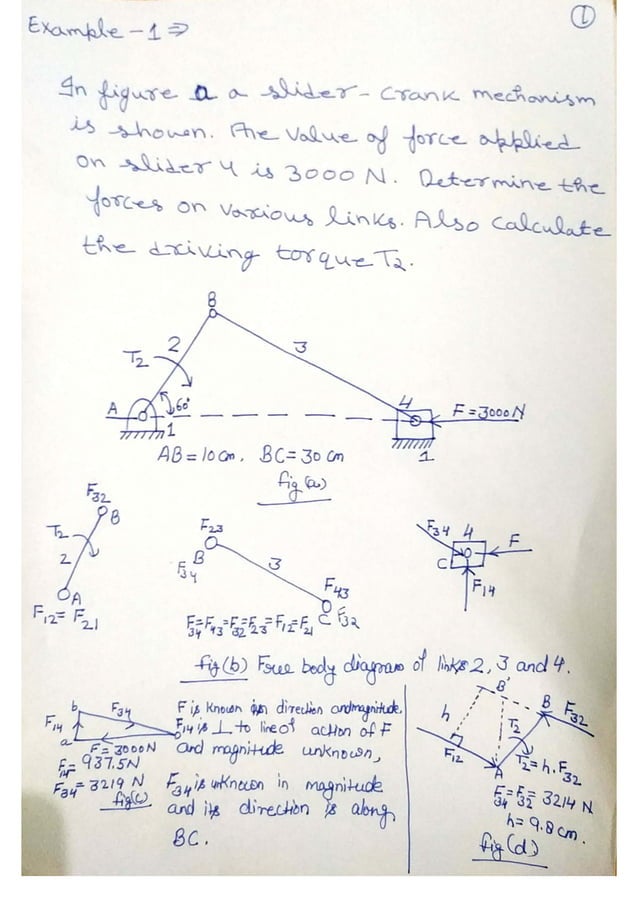 1
Example - 1 ⇒
In figure a a slider - crank mechanism
is shown. The value of force applied
on slider 4 is 3000 N. Determine the
forces on various links. Also calculate
the driving torque T2.
B
2
3
T2
A
60°
4
F = 3000 N
1
1
AB = 10 cm, BC = 30 cm
fig (a)
F32
B
T2
2
A
F12 = F21
F23
B
F34
3
F43
C F32
F34 = F43 = F32 = F23 = F12 = F21
F34 4
F
C
F14
fig (b) Free body diagram of links 2, 3 and 4.
b
F34
F14
a
F = 3000 N
F14 = 937.5 N
F34 = 3219 N
fig (c)
F is known in direction and magnitude.
F14 is ⊥ to line of action of F
and magnitude unknown,
F34 is unknown in magnitude
and its direction is along
BC.
B'
B
F32
h
T2
F12
A
T2 = h. F32
F34 = F32 = 3214 N
h = 9.8 cm.
fig (d)